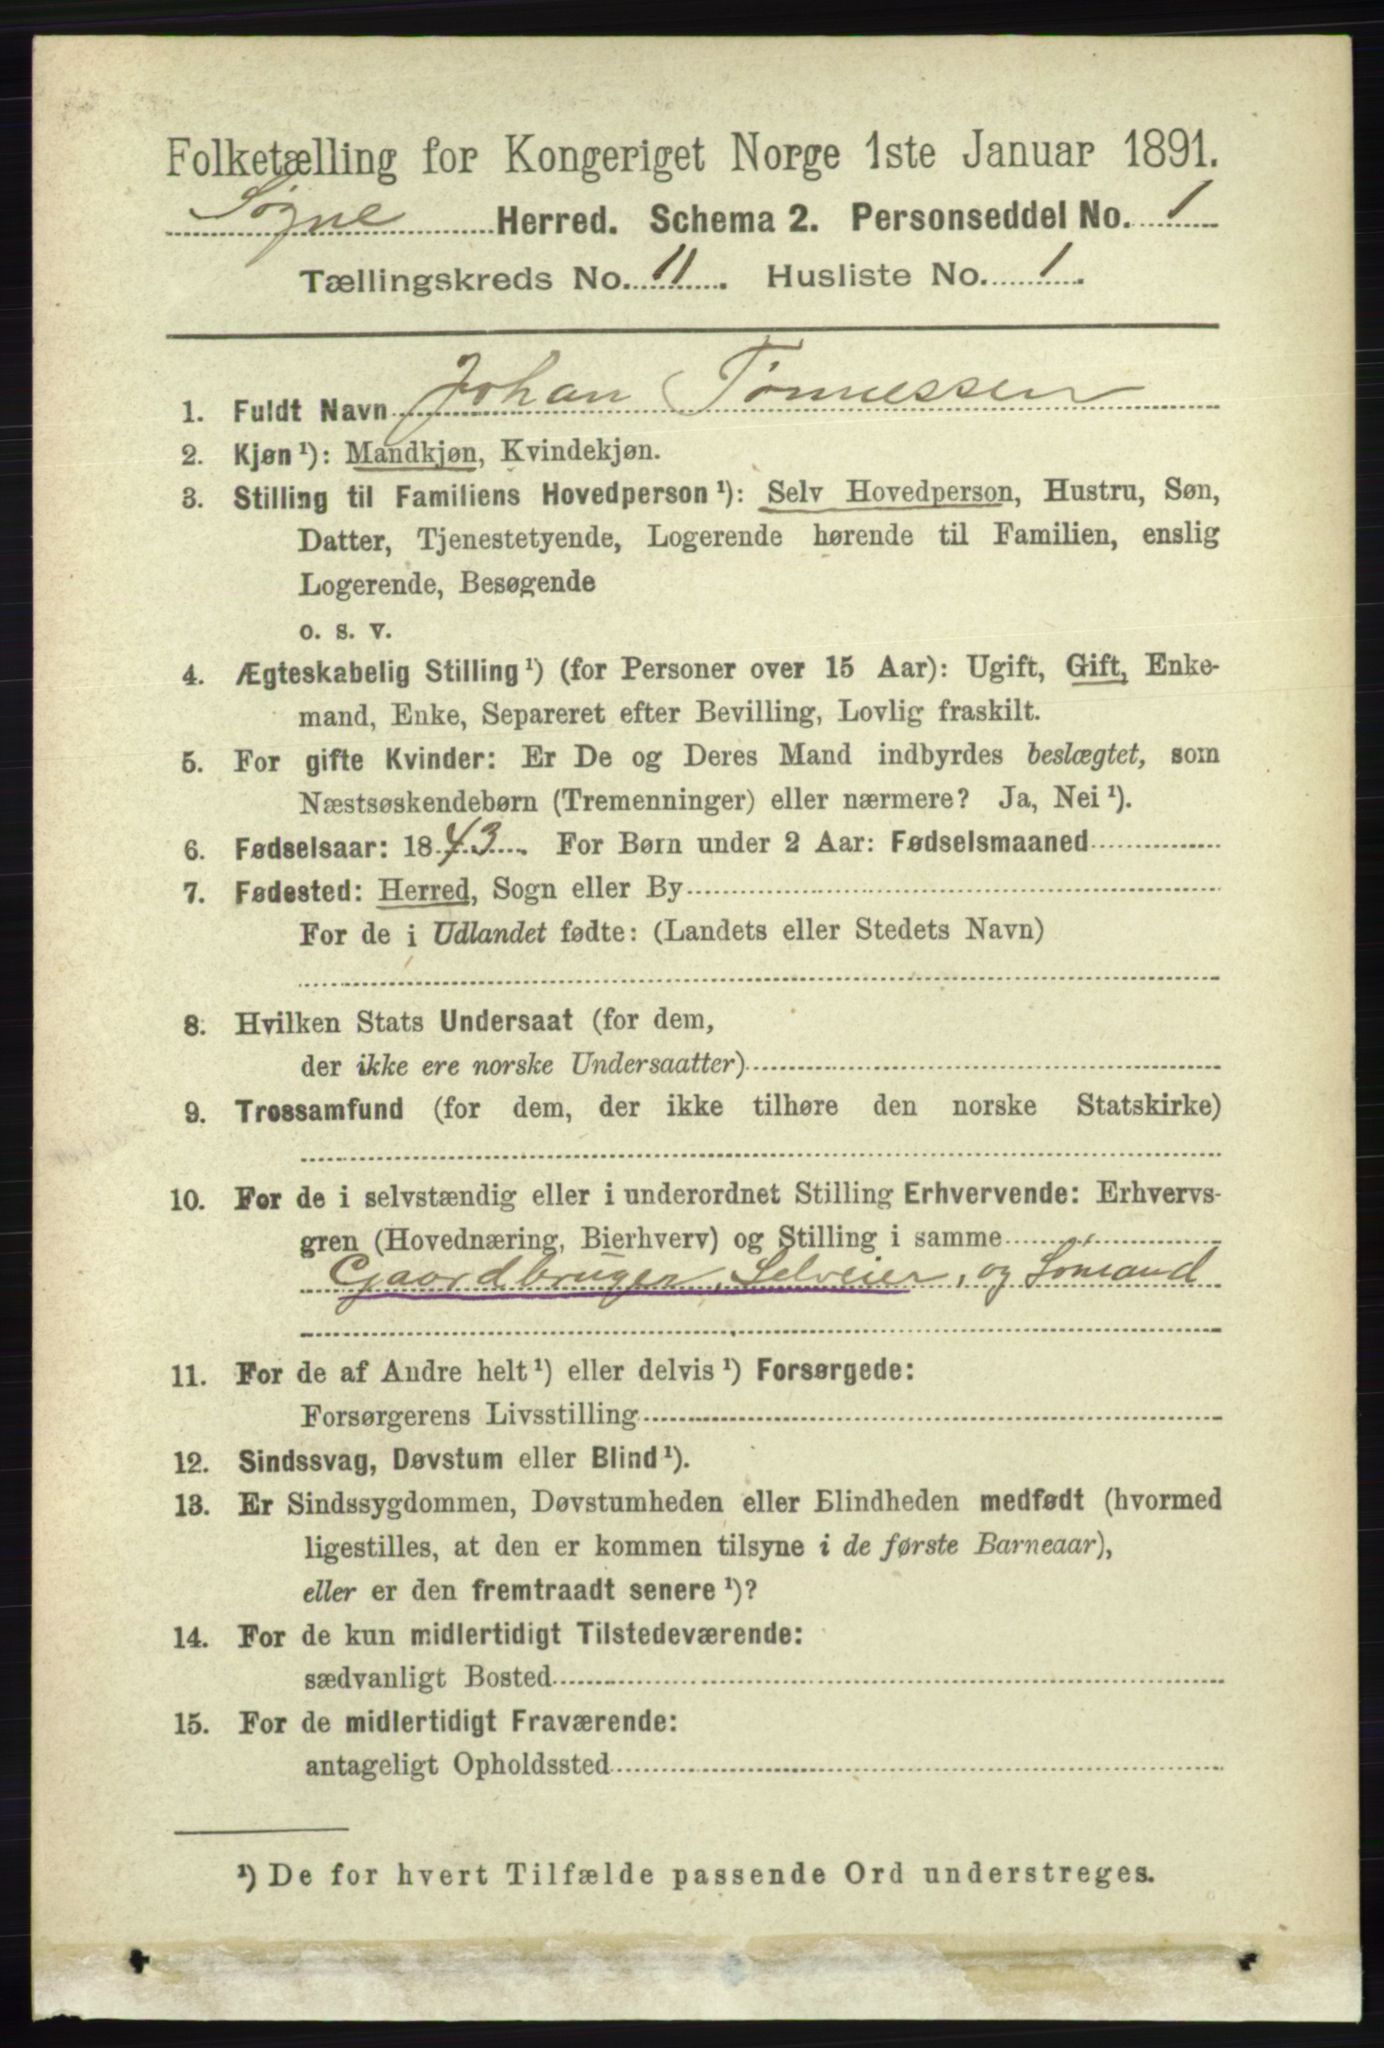 Folketælling for Kongeriget Norge 1ste Januar 1891.
Søgne Herred. Schema 2. Personseddel No. 1
Tællingskreds No. 11. Husliste No. 1.
1. Fuldt Navn Johan Tønnessen
2. Kjøn¹): Mandkjøn, Kvindekjøn.
3. Stilling til Familiens Hovedperson¹): Selv Hovedperson, Hustru, Søn,
Datter, Tjenestetyende, Logerende hørende til Familien, enslig
Logerende, Besøgende
o. s. v.
4. Ægteskabelig Stilling¹) (for Personer over 15 Aar): Ugift, Gift, Enke-
mand, Enke, Separeret efter Bevilling, Lovlig fraskilt.
5. For gifte Kvinder: Er De og Deres Mand indbyrdes beslægtet, som
Næstsøskendebørn (Tremenninger) eller nærmere? Ja, Nei¹).
6. Fødselsaar: 1843. For Børn under 2 Aar: Fødselsmaaned
7. Fødested: Herred, Sogn eller By
For de i Udlandet fødte: (Landets eller Stedets Navn)
8. Hvilken Stats Undersaat (for dem,
der ikke ere norske Undersaatter)
9. Trossamfund (for dem, der ikke tilhøre den norske Statskirke)
10. For de i selvstændig eller i underordnet Stilling Erhvervende: Erhvervs-
gren (Hovednæring, Bierhverv) og Stilling i samme
Gaardbruger, Selveier, og Sömand
11. For de af Andre helt¹) eller delvis¹) Forsørgede:
Forsørgerens Livsstilling
12. Sindssvag, Døvstum eller Blind¹).
13. Er Sindssygdommen, Døvstumheden eller Blindheden medfødt (hvormed
ligestilles, at den er kommen tilsyne i de første Barneaar),
eller er den fremtraadt senere¹)?
14. For de kun midlertidigt Tilstedeværende:
sædvanligt Bosted
15. For de midlertidigt Fraværende:
antageligt Opholdssted
¹) De for hvert Tilfælde passende Ord understreges.